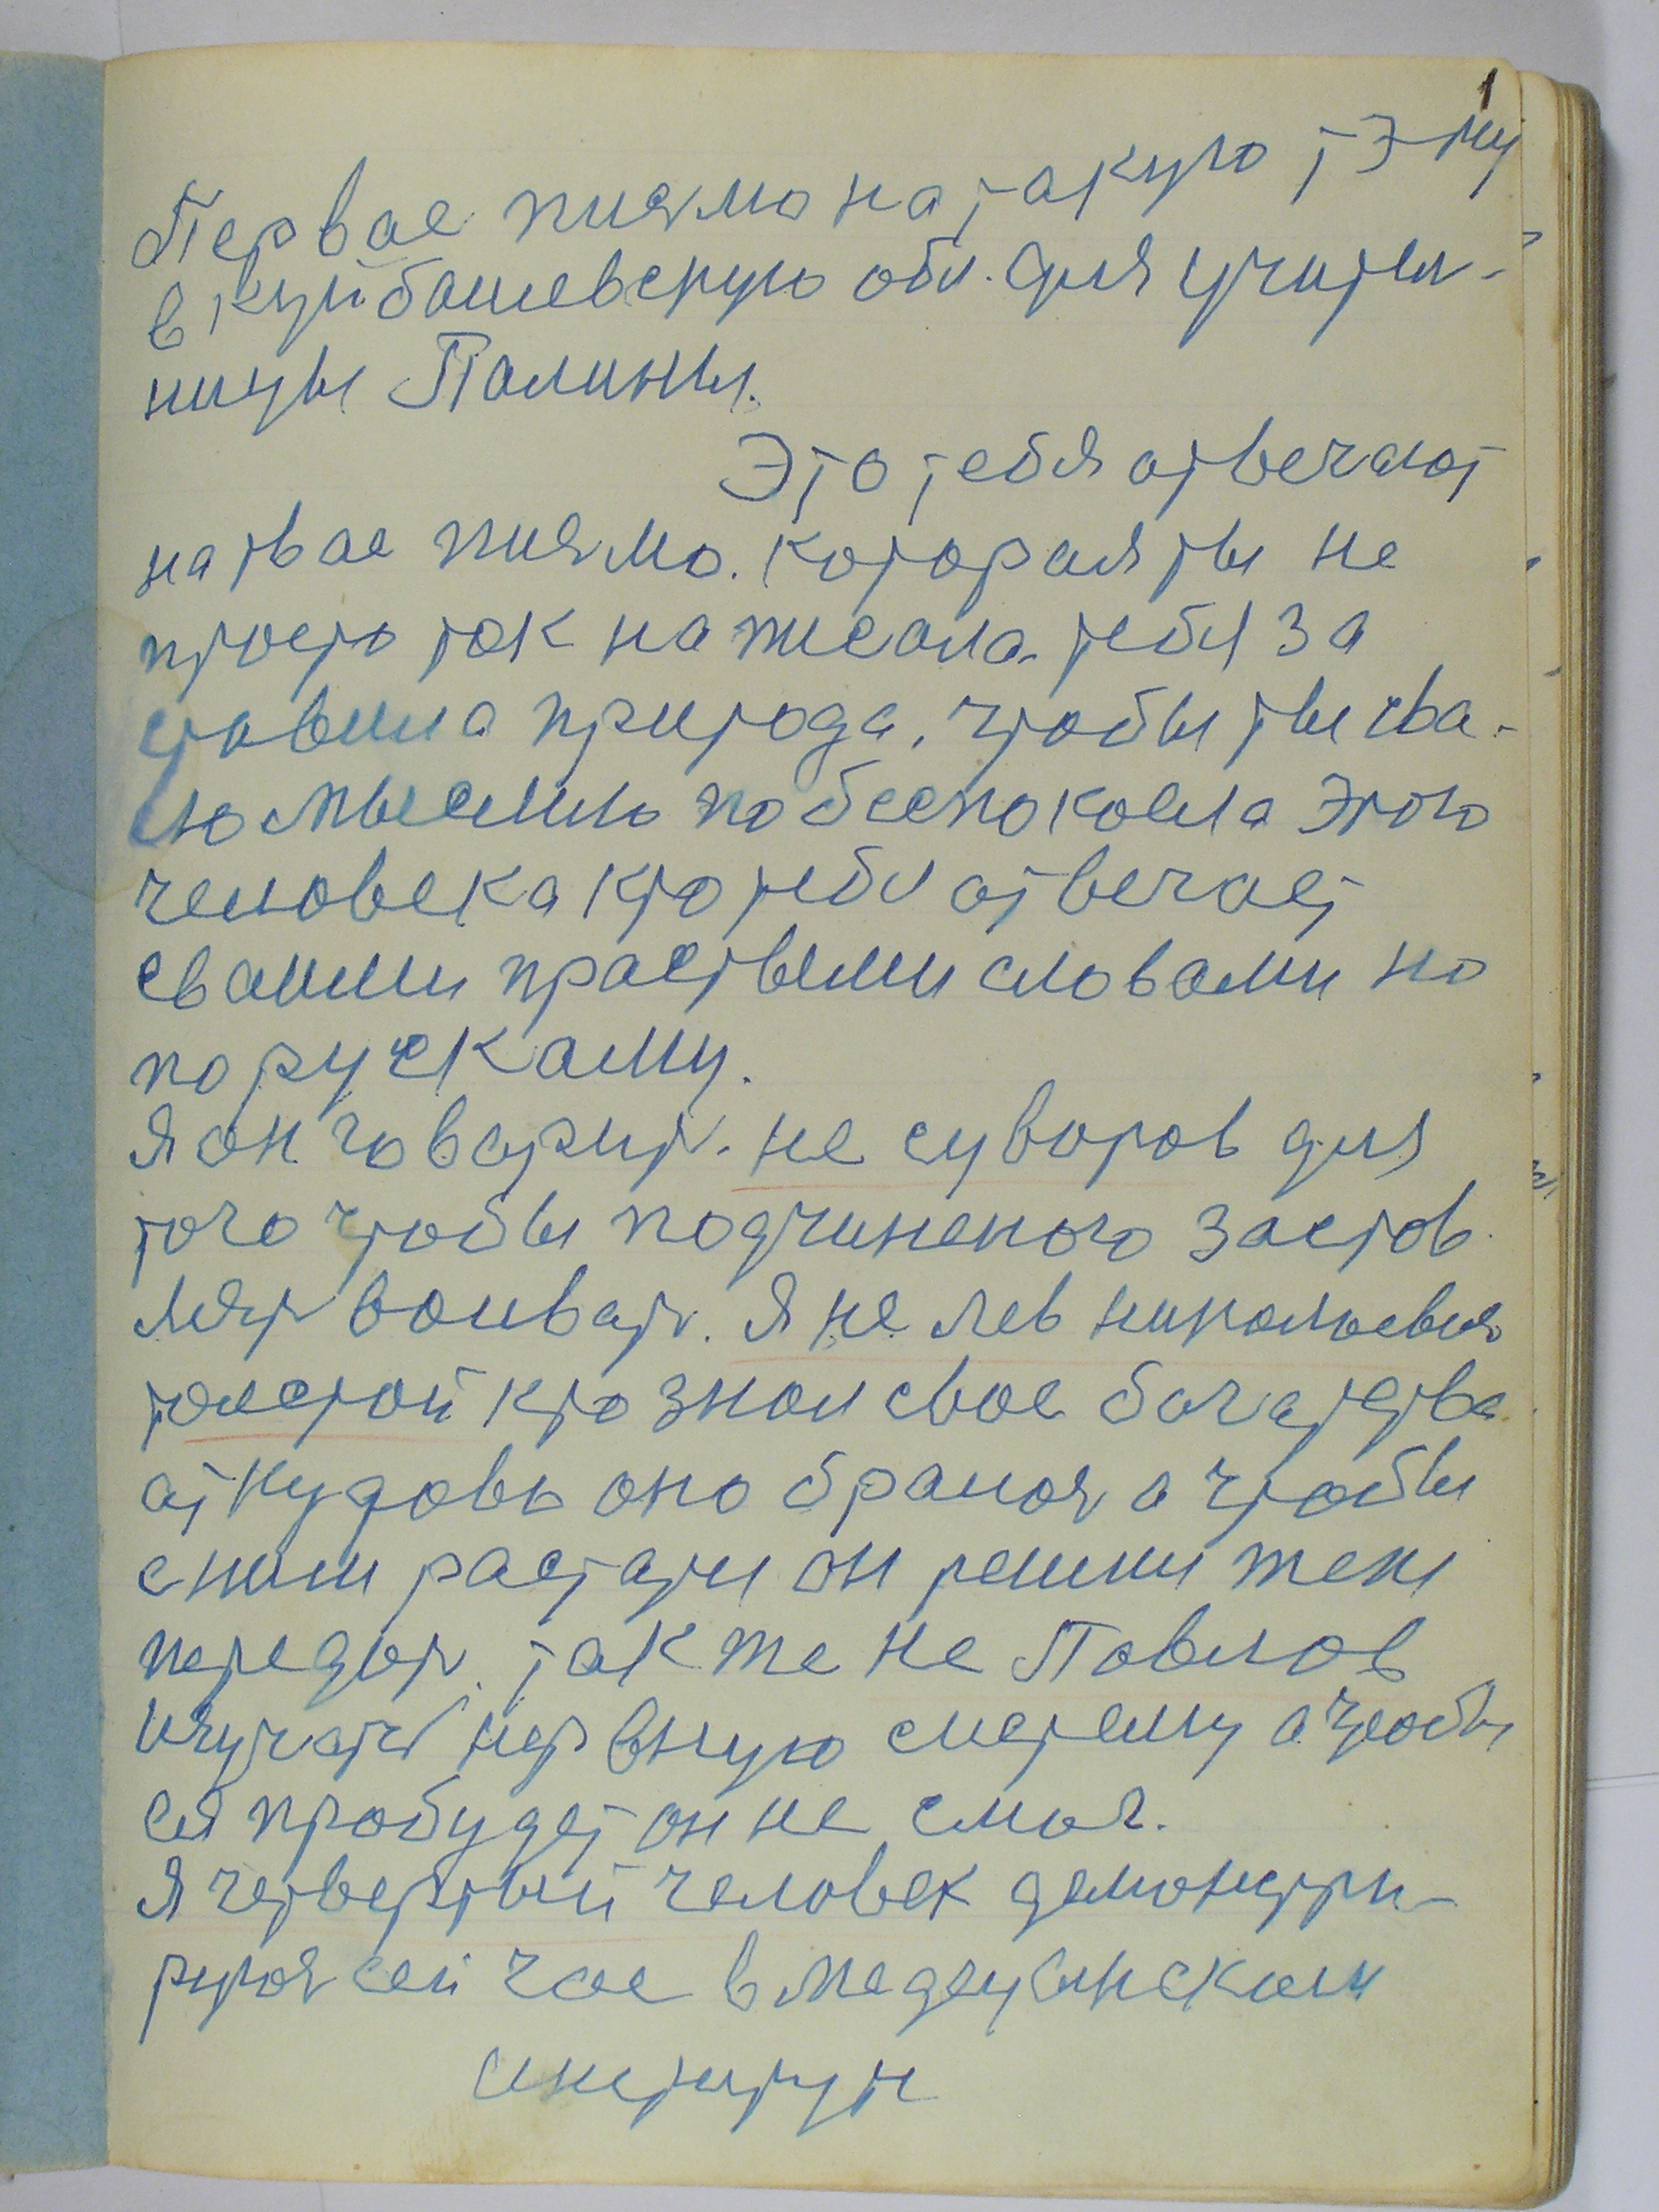 1
Первае писмо на такую тэму
в куйбашевскую обл. для учител-
ницы Палины.
Это тебя атвечают
на твае писмо. котарая ты не
просто так написала. тебя за
ставила природа, чтобы ты сва-
ею мыслию побеспокоела этого
человека кто тебя атвечает
сваими прастыми словами но
по рускаму.
Я он говарит. не суворов для
того чтобы подчиненого застав
лять воивать. Я не лев николаевич
толстой кто знал свое багатства
аткудовь оно бралося а чтобы
сним растатся он решил жене
передать. также не Павлов
изучать нервную систему а чтобы
ея пробудет он не смог.
Я четвертый человек демонстри-
руюся сей час в медецинскам
институте